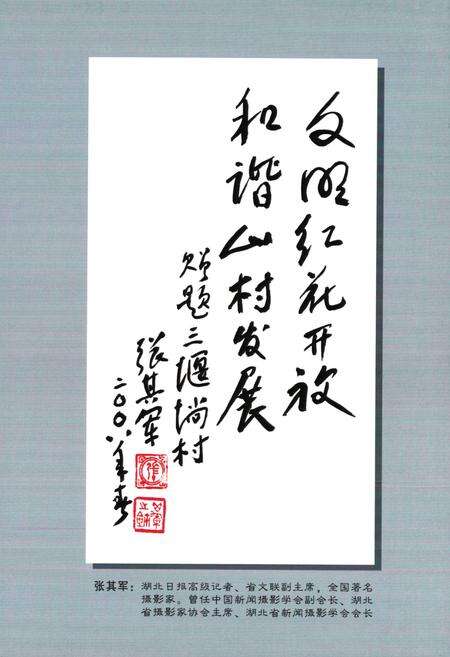 文明红花开放
和谐山村发展
赠题三堰垱村
张其军
二〇〇八年春
张其军：湖北日报高级记者、省文联副主席，全国著名
摄影家。曾任中国新闻摄影学会副会长、湖北
省摄影家协会主席、湖北省新闻摄影学会会长